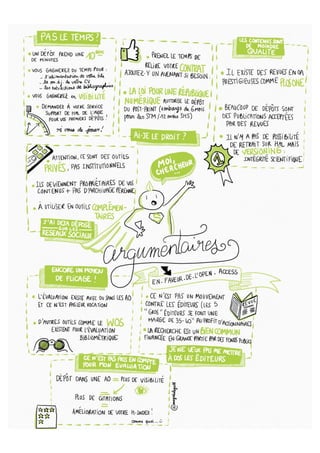 PAS LE TEMPS?
UN DÉPÔT PREND UNE 10aine
DE MINUTES
VOUS GAGNEREZ DU TEMPS POUR :
VOUS GAGNEREZ EN VISIBILITÉ
DEMANDER À VOTRE SERVICE
SUPPORT DE HAL DE L'AIDE
POUR VOS PREMIERS DÉPÔTS !
PRENEZ LE TEMPS DE
RELIRE VOTRE CONTRAT
AJOUTEZ-Y UN AVENANT SI BESOIN
LA LOI POUR UNE RÉPUBLIQUE
NUMÉRIQUE AUTORISE LE DÉPÔT
DU POST-PRINT (embargo de 6 mois
pour des STM / 12 mois SHS)
AI-JE LE DROIT ?
LES CONTENUS SONT
DE MOINDRE
QUALITÉ
IL EXISTE DES REVUES EN OA
PRESTIGIEUSES COMME PLOS ONE!
BEAUCOUP DE DÉPÔTS SONT
DES PUBLICATIONS ACCEPTÉES
PAR DES REVUES
IL N'Y A PAS DE POSSIBILITÉ
DE RETRAIT SUR HAL MAIS
DE VERSIONING :
INTÉGRITÉ SCIENTIFIQUE
ATTENTION, CE SONT DES OUTILS
PRIVÉS, PAS INSTITUTIONNELS
ILS DEVIENNENT PROPRIÉTAIRES DE VOS
CONTENUS + PAS D'ARCHIVAGE PÉRENNE
À UTILISER EN OUTILS COMPLÉMEN-
TAIRES
J'AI DÉJÀ DÉPOSÉ
SUR LES
RESEAUX SOCIAUX
MOI,
CHERCHEUR
argumentaires
EN FAVEUR DE L'OPEN ACCESS
ENCORE UN MOYEN
DE FLICAGE !
L'ÉVALUATION EXISTE AVEC OU SANS LES AO
ET CE N'EST PAS LEUR VOCATION
D'AUTRES OUTILS COMME LE WOS
EXISTENT POUR L'ÉVALUATION
BIBLIOMÉTRIQUE
CE N'EST PAS UN MOUVEMENT
CONTRE LES ÉDITEURS (LES 5
"GROS" ÉDITEURS SE FONT UNE
MARGE DE 35-40% AU PROFIT D'ACTIONNAIRES)
LA RECHERCHE EST UN BIEN COMMUN
FINANCÉE EN GRANDE PARTIE PAR DES FONDS PUBLICS
JE NE VEUX PAS ME METTRE
À DOS LES ÉDITEURS
CE N'EST PAS PRIS EN COMPTE
POUR MON ÉVALUATION
DÉPÔT DANS UNE AO = PLUS DE VISIBILITÉ
PLUS DE CITATIONS
AMÉLIORATION DE VOTRE H-INDEX !